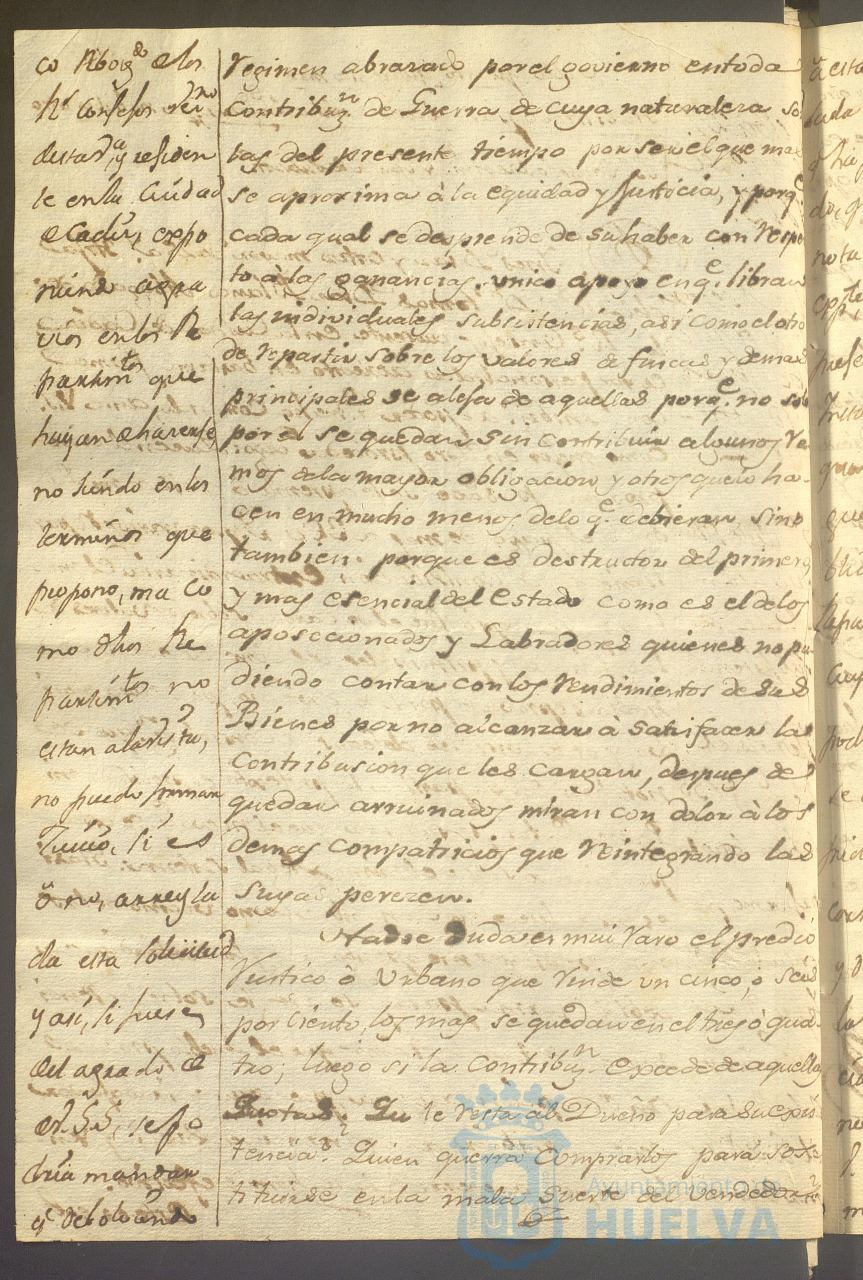 co Abog.do de los
R.s Consejos vecino
de esta d.a y residen
te en la Ciudad
de Cadiz, expo
niendo agra
vios en los Re
partim.tos que
haijan de harense
no siendo en los
terminos que
propone, mas co
mo dhos Re
partim.tos no
estan ala vista,
no puedo formar
Juicio, si es
ô no, arregla
da esta solicitud
y asi, si fuese
del agrado de
VSS, se po
dria mandar
q.e debolviendo
regimen abrazado por el govierno en toda
Contribuz.n de Guerra de cuya naturaleza so
las del presente tiempo por ser el que mas
se aproxima à la equidad y Justicia, y porq.e
cada qual se desprende de su haber con respe
to à las ganancias unico apoyo en q.e libran
las individuales subsistencias, asi como el otro
de repartir sobre los valores de fincas y demas
principales se aleja de aquellas porq.e no solo
por el se quedan sin contribuir algunos Ra
mos de la mayor obligacion y otros que lo ha-
cen en mucho menos de lo q.e debieran, sino
tambien porque es destructor del primero
y mas esencial del Estado como es el de los
aposeccionados y Labradores quienes no pu
diendo contar con los rendimientos de sus
Bienes por no alcanzar à satisfacer la
Contribusion que les cargan, despues de
quedar arruinados miran con dolor à los
demas compatricios que reintegrando las
suyas perezen.
Nadie duda es mui raro el predio
rustico ò urbano que rinde un cinco, o seis
por ciento, los mas se quedan en el tres ò qua-
tro; luego si la contribuz.n excede de aquella
Quotas. Qu le resta al Dueño para su exis
tencia? Quien querrá comprarlos para sos
tituirse en la mala suerte del vendedor?
Ayuntamiento de
HUELVA